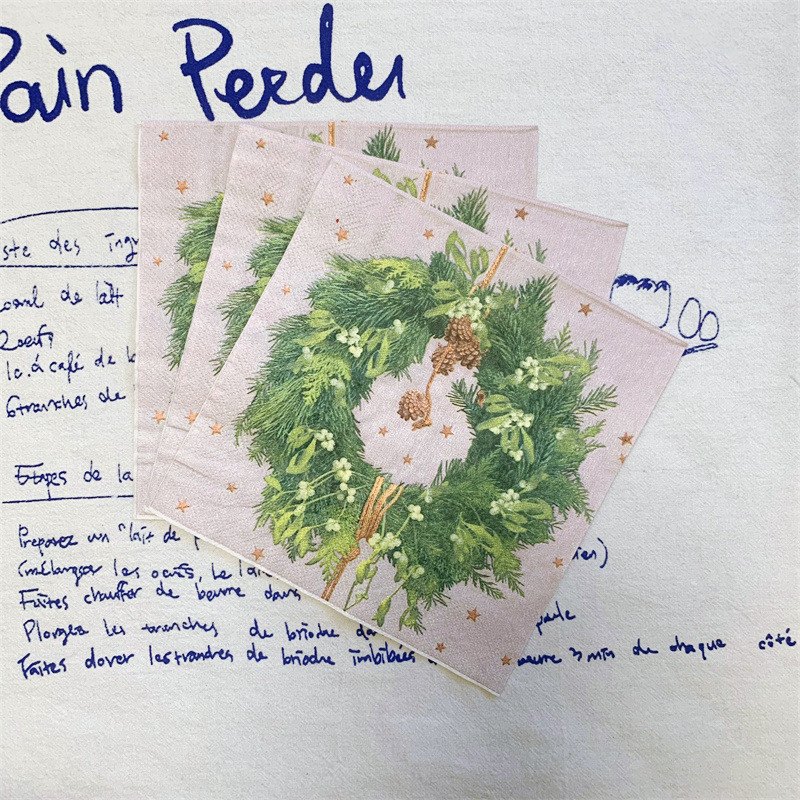 Pain Perdu
ste des ing
de lait
2 oeufs
1c. à café de
6 tranches de
Etapes de la
Preparez un "lait de
(mélanger les oeufs, le
Faites chauffer de beurre dans
Plongez les tranches de brioche da
Faites dorer les tranches de brioche imbibées 3 min de chaque côté